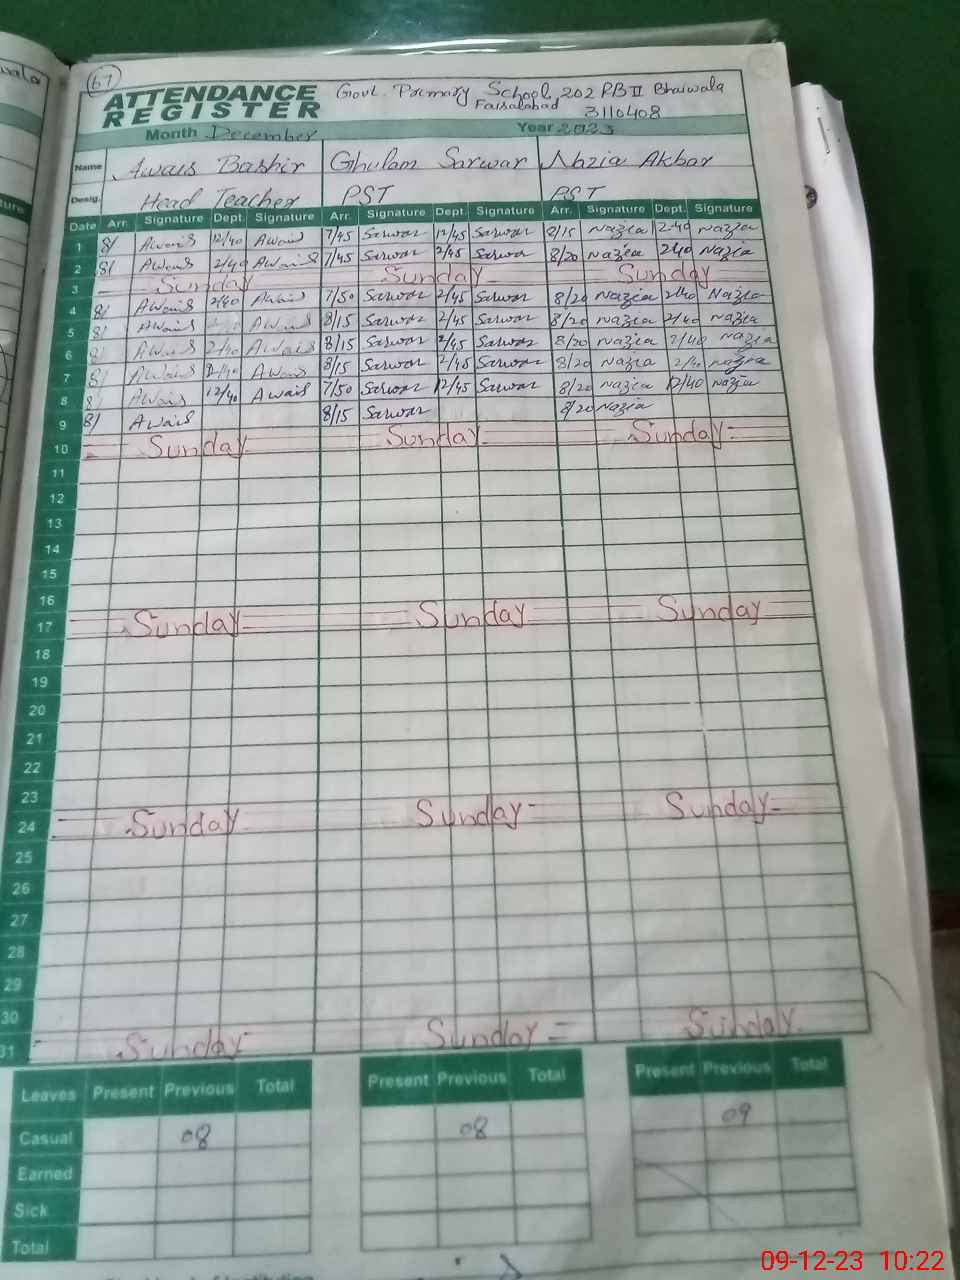 67
ATTENDANCE REGISTER
Govt. Primary School, 202 RB II Bhaiwala
Faisalabad 3110408
Month December Year 2023
Name Awais Bashir Ghulam Sarwar Nazia Akbar
Desig. Head Teacher PST PST
Date Arr. Signature Dept. Signature Arr. Signature Dept. Signature Arr. Signature Dept. Signature
1 8/ Awais 12/40 Awais 7/45 Sarwar 12/45 Sarwar 8/15 Nazia 2-40 Nazia
2 8/ Awais 2/40 Awais 7/45 Sarwar 2/45 Sarwar 8/20 Nazia 240 Nazia
3 Sunday Sunday Sunday
4 8/ Awais 2/40 Awais 7/50 Sarwar 2/45 Sarwar 8/20 Nazia 2/40 Nazia
5 8/ Awais Awais 8/15 Sarwar 2/45 Sarwar 8/20 Nazia 2/40 Nazia
6 8/ Awais 2/40 Awais 8/15 Sarwar 2/45 Sarwar 8/20 Nazia 2/40 Nazia
7 8/ Awais 2/40 Awais 8/15 Sarwar 2/45 Sarwar 8/20 Nazia 2/40 Nazia
8 8/ Awais 12/40 Awais 7/50 Sarwar 12/45 Sarwar 8/20 Nazia 12/40 Nazia
9 8/ Awais 8/15 Sarwar 8/20 Nazia
10 Sunday Sunday Sunday
11
12
13
14
15
16
17 Sunday Sunday Sunday
18
19
20
21
22
23
24 Sunday Sunday Sunday
25
26
27
28
29
30
31 Sunday Sunday Sunday
Leaves Present Previous Total Present Previous Total Present Previous Total
Casual 08 08 09
Earned
Sick
Total
09-12-23 10:22